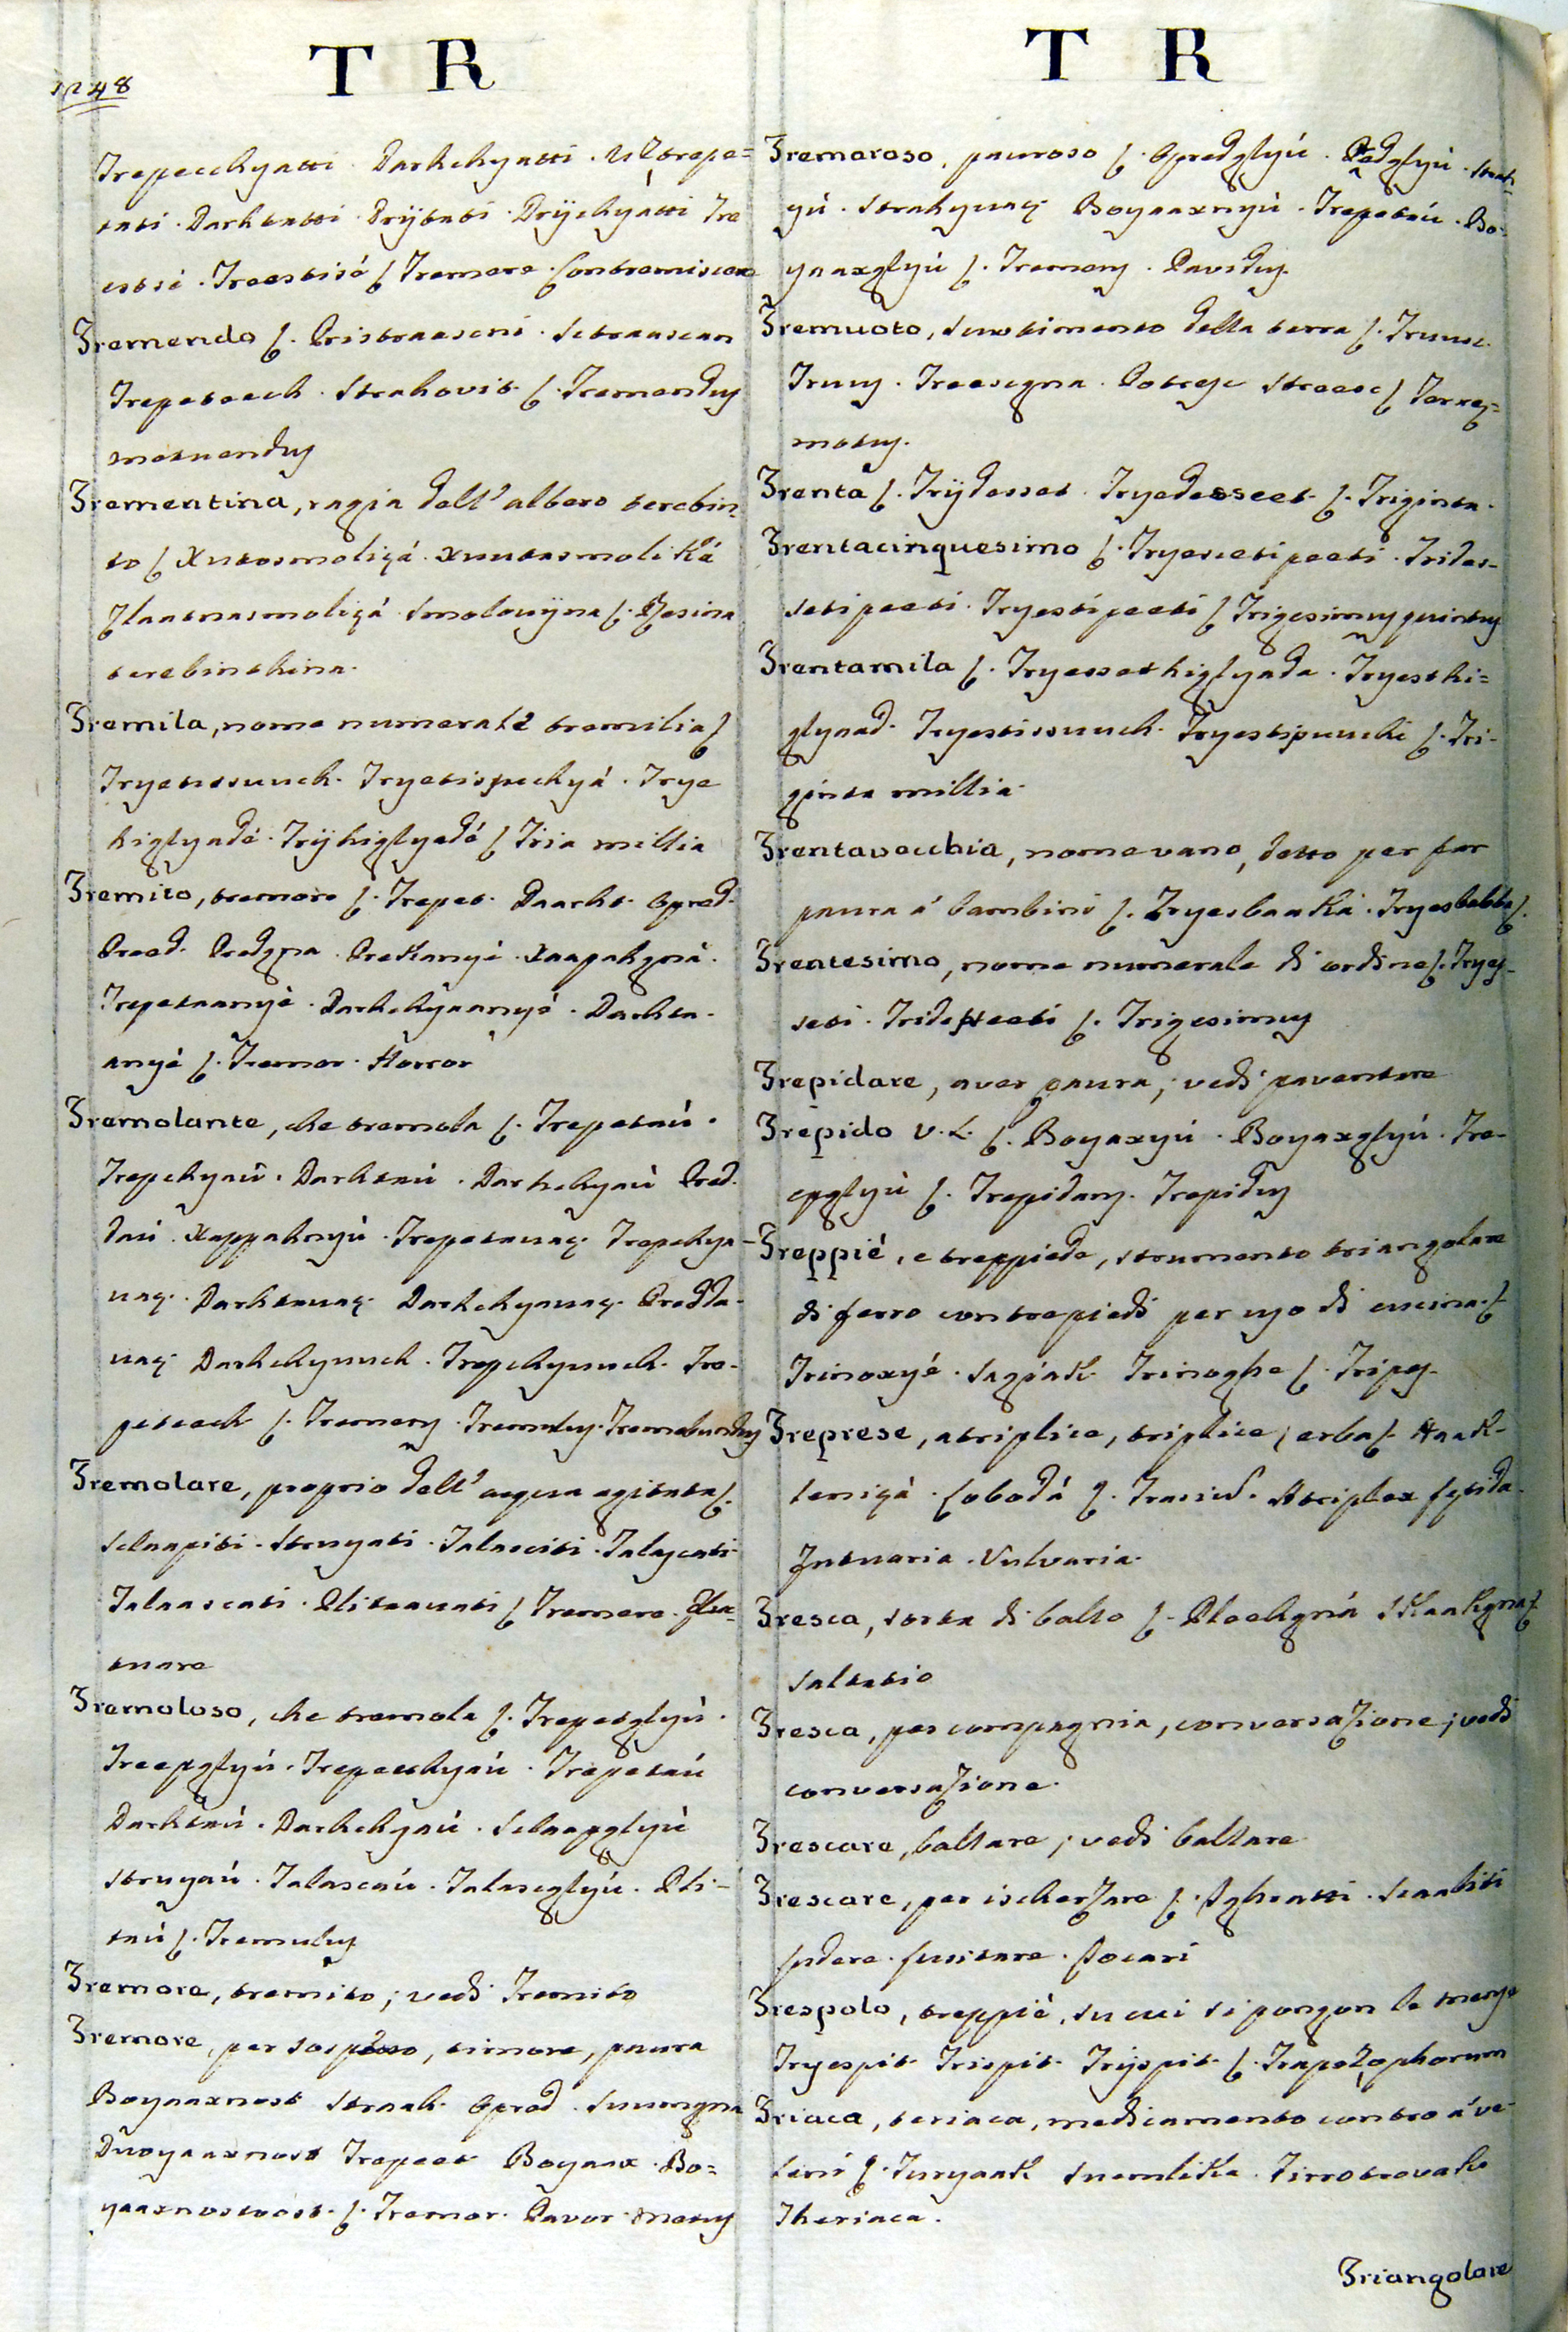 1248
T R
Trepecchyatti. Darhchyatti. Uztrepe=
tati. Darhtatti. Drÿtati. Drÿchyátti Tre
estsi. Treestisé ʃ Tremere. Contremiscere
Tremendo ʃ. Pristraaseni. Straascan
Trepeteech. Strahovit ʃ. Tremendus
metuendus
Trementina, ragia dell' albero terebin-
to ʃ Xutosmoliçá. xuutasmolikà
Zlaatnasmoliçá. Smolouÿna ʃ. Resina
terebinthina.
Tremila, nome numerale tremilia ʃ
Tryetissuuch. Tryetispuchyá. Trye
higlyadé. Trÿhiglyadé ʃ Tria millia
Tremito, tremore ʃ. Trepet. Daarht. Opred.
Preed. Predgna. Prekanyé. Xaapahgná.
Trepetaanyé. Darhchyaanyé. Darhta-
anyé ʃ. Tremor. Horror
Tremolante, che tremola ʃ. Trepetaú.
Trepchyaú. Darhtaú. Darhchyaú Pred-
daú. Xappahnyú. Trepetauaç. Trepchya-
uaç. Darhtauaç. Darhchyauaç. Predda-
uaç. Darhchyuuch. Trepchyuuch. Tre-
peteech ʃ. Tremens. Tremulus. Tremebundus
Tremolare, proprio dell' acqua agitata ʃ.
Sclaapiti. Struyati. Talasciti. Talascati
Talaascati. Plitauati ʃ Tremere. Fluc-
tuare
Tremoloso, che tremola ʃ. Trepetglyú.
Treepglyú. Trepecchyaú. Trepetaú
Darhtaú. Darhchyaú. Sclaapglyú
Struyaú. Talascaú. Talascglyú. Pli-
taú ʃ. Tremulus
Tremore, tremito; vedi Tremito
Tremore, per sospetto, timore, paura
Boyaaxnost Straah. Opred. Suumgna
Duoyaaxnost Trepeet Boyaax. Bo=
yaaxnostvost. ʃ. Tremor. Pavor. Metus
T R
Tremoroso, pauroso ʃ. Opredglyú. Pedglyú. Strah-
yú. Strahyuaç Boyaaxnyú. Trepetaú. Bo-
yaaxglyú ʃ. Tremens. Pavidus
Tremuoto, scuotimento della terra ʃ. Truusc.
Truus. Treescgna. Potresc Streesc ʃ Terræ=
motus.
Trenta ʃ. Trÿdesset. Tryedesseet. ʃ. Triginta.
Trentacinquesimo ʃ. Tryesсetipeeti. Trides-
setipeeti. Tryestipeeti ʃ Trigesimus quintus
Trentamila ʃ. Tryessethiglyada. Tryesthi=
glyaad. Tryestissuuch. Tryestipuuchi ʃ. Tri-
ginta millia
Trentavecchia, nome vano, detto per far
paura á bambini ʃ. Tryesbaaka. Tryesbabba ʃ.
Trentesimo, nome numerale di ordine ʃ. Tryes-
seti. Trideseeti ʃ. Trigesimus
Trepidare, aver paura; vedi paventare
Trepido V. L. ʃ. Boyaxyú. Boyaxglyú. Tre-
epglyú ʃ. Trepidans. Trepidus
Treppié, e treppiede, strumento triangolare
di ferro con tre piedi per uso di cucina. ʃ
Trinoxyé. Sagiak Trinoghe ʃ. Tripes.
Treprese, atriplice, triplice; erba ʃ. Haak-
teniçá. Lobodá ʃ. Trasius. Atriplex fetida.
Jutuaria. Vulvaria.
Tresca, sorta di ballo ʃ. Pleehgná Skaakgna ʃ
Saltatio
Tresca, per compagnia, conversazione; vedi
conversazione.
Trescare, ballare; vedi ballare
Trescare, per ischerzare ʃ. Igheatti. Scaaliti
Ludere. Lusitare. Jocari
Trespolo, treppié, su cui si pongon le mense
Tryespit. Trispit. Trÿspit ʃ. Trapezophorum
Triaca, teriaca, medicamento contro á ve-
leni ʃ. Turyaak Suemlika. Tirrotrovaka
Theriaca.
Triangolare